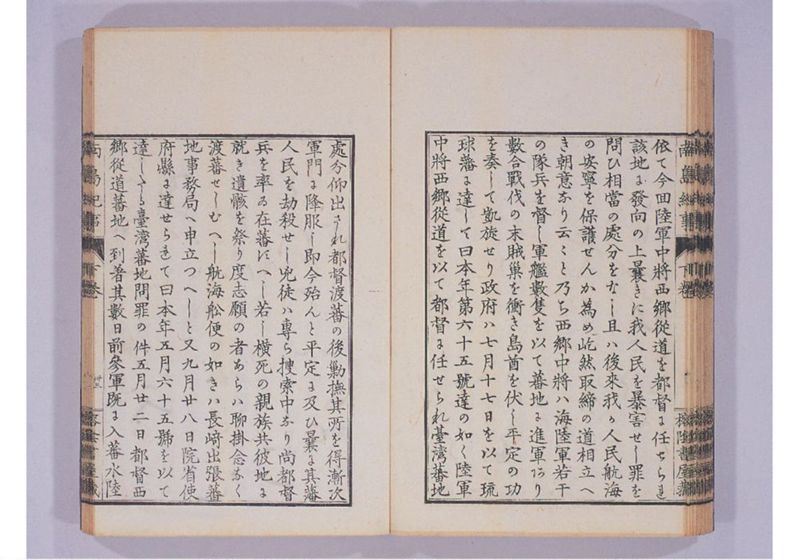 依て今回陸軍中將西郷從道を都督に任せられ
該地に發向の上曩きに我人民を暴害せし罪を
問ひ相當の處分をなし且ハ後來我カ人民航海
の安寧を保護せんか為め屹然取締の道相立へ
き朝意なり云々と乃ち西郷中將ハ海陸軍若干
の隊兵を督し軍艦數隻を以て蕃地に進軍あり
數合戰伐の末賊巣を衝き島酋を伏し平定の功
を奏して凱旋せり政府ハ七月十七日を以て琉
球藩に達して曰本年第六十五號達の如く陸軍
中將西郷從道を以て都督に任せられ臺灣蕃地
處分仰出され都督渡蕃の後勦撫其所を得漸次
軍門に降服し即今殆んと平定に及ひ曩に其藩
人民を劫殺せし兇徒ハ専ら捜索中なり尚都督
兵を率ゐ在蕃に候へハ若し横死の親族共彼地に
就き遺骸を祭り度志願の者あらハ聊掛念なく
渡蕃せしむへし航海舩便の如きハ長崎出張蕃
地事務局へ申立つへしと又九月廿八日院省使
府縣に達せられて曰本年五月六十五號を以て
達しせる臺灣蕃地問罪の件五月廿二日都督西
郷從道蕃地へ到着其數日前參軍既に入蕃水陸
南島紀事
下巻